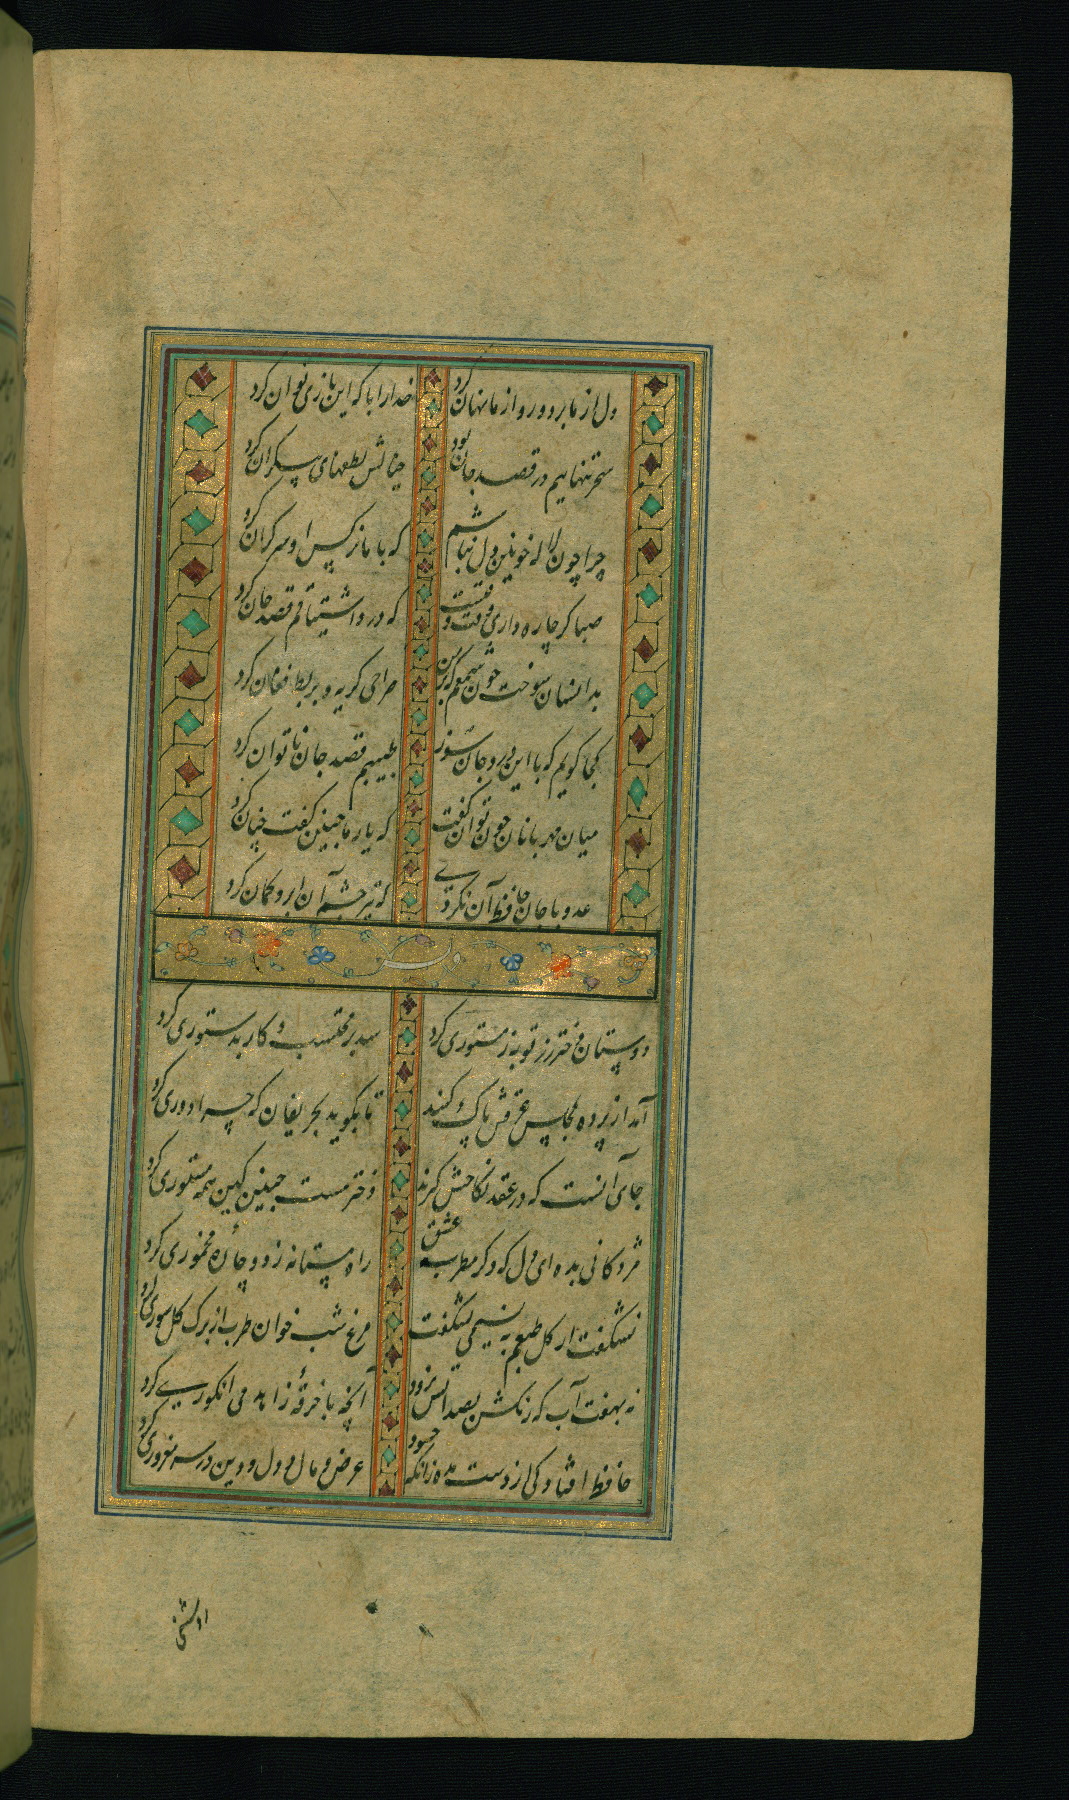 دل از ما برد و رو از ما نهان کرد خدا را با که این بازی توان کرد
سحر تنهاییم در قصد جان بود خیالش لطفهای بیکران کرد
چرا چون لاله خونین دل نباشم که با ما نرگس او سر گران کرد
صبا گر چاره داری وقت وقتست که درد اشتیاقم قصد جان کرد
بدانسان سوخت چون شمعم که بر من صراحی گریه و بربط فغان کرد
کجا گویم که با این درد جان سوز طبیبم قصد جان ناتوان کرد
میان مهربانان چون توان گفت که یار ما چنین گفت چنان کرد
عدو با جان حافظ آن نکردے که تیر چشم آن ابرو کمان کرد
دوستان دختر رز توبه ز مستوری کرد شد بر محتسب و کار بدستوری کرد
آمد از پرده بمجلس عرقش پاک کنید تا بگوید بحریفان که چرا دوری کرد
جای آنست که در عقد نکاحش گیرند دختر مست چنین کین همه مستوری کرد
مژدگانی بده ای دل که دگر مطرب عشق راه مستانه زد و چارهٔ مخموری کرد
نشگفت ار گل طبعم به نسیمی بشگفت مرغ شب خوان طرب از برگ گل سوری کرد
نه بهفت آب که رنگش بصد آتش نرود آنچه با خرقهٔ زاهد می انگوری کرد
حافظ افتادگی از دست مده زانکه حسود عرض و مال و دل و دین در سر مغروری کرد